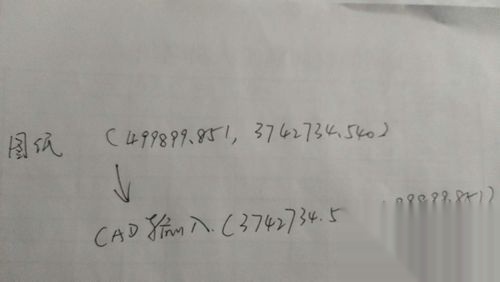 图纸 (499899.851, 3742734.540)
CAD输入.(3742734.5